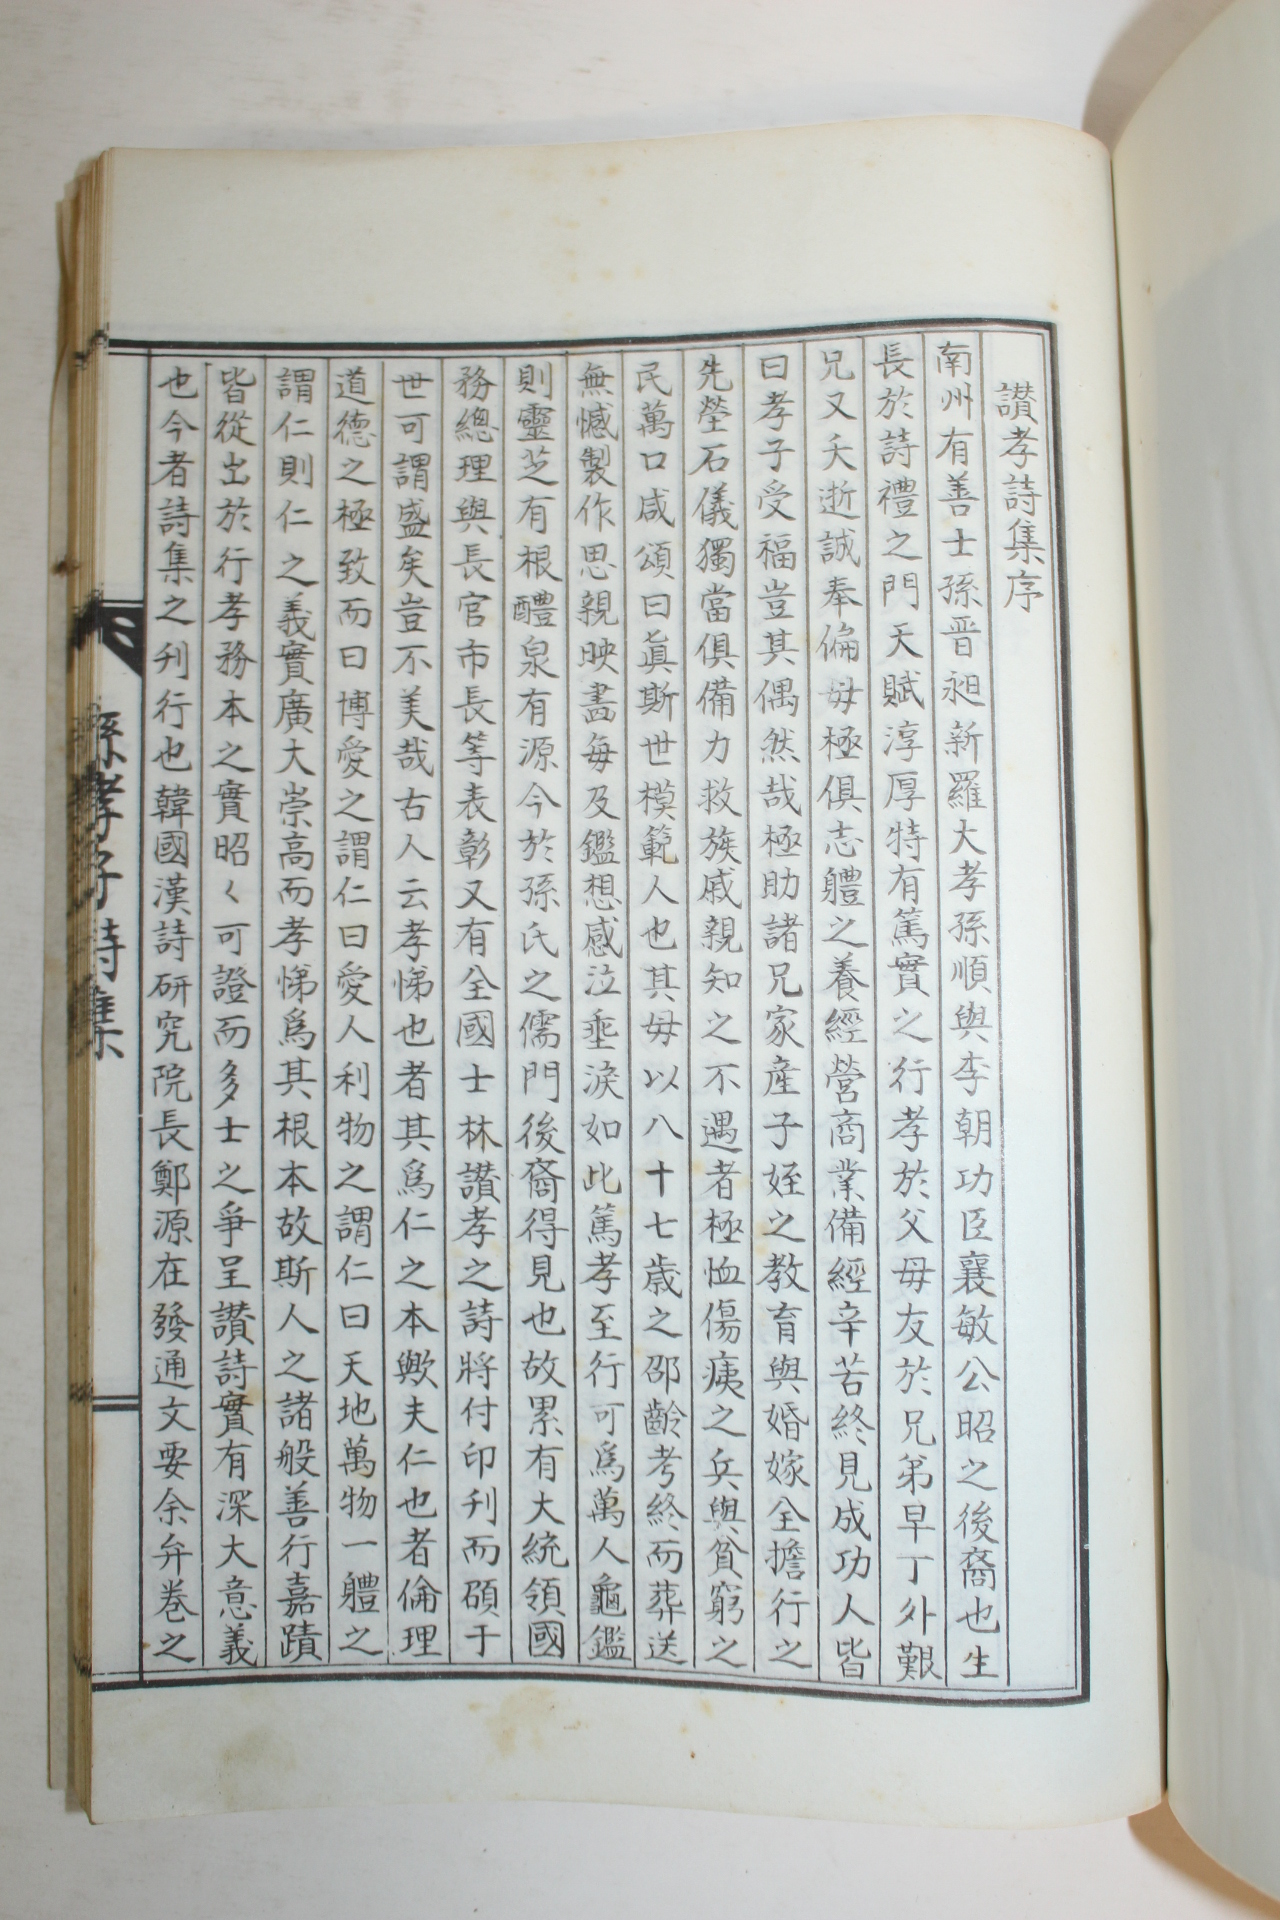 讃孝詩集序
南州有善士孫晋昶新羅大孝孫順與李朝功臣襄敏公昭之後裔也生
長於詩禮之門天賦淳厚特有篤實之行孝於父母友於兄弟早丁外艱
兄又夭逝誠奉偏母極俱志軆之養經營商業備經辛苦終見成功人皆
曰孝子受福豈其偶然哉極助諸兄家産子姪之教育與婚嫁全擔行之
先塋石儀獨當俱備力救族戚親知之不遇者極恤傷痍之兵與貧窮之
民萬口咸頌曰眞斯世模範人也其母以八十七歳之邵齡考終而葬送
無憾製作思親映畵每及鑑想感泣垂淚如此篤孝至行可爲萬人龜鑑
則靈芝有根醴泉有源今於孫氏之儒門後裔得見也故累有大統領國
務總理與長官市長等表彰又有全國士林讃孝之詩將付印刋而碩于
世可謂盛矣豈不美哉古人云孝悌也者其爲仁之本歟夫仁也者倫理
道德之極致而曰博愛之謂仁曰愛人利物之謂仁曰天地萬物一軆之
謂仁則仁之義實廣大崇高而孝悌爲其根本故斯人之諸般善行嘉蹟
皆從出於行孝務本之實昭々可證而多士之爭呈讃詩實有深大意義
也今者詩集之刋行也韓國漢詩研究院長鄭源在發通文要余弁卷之
孫孝子詩集